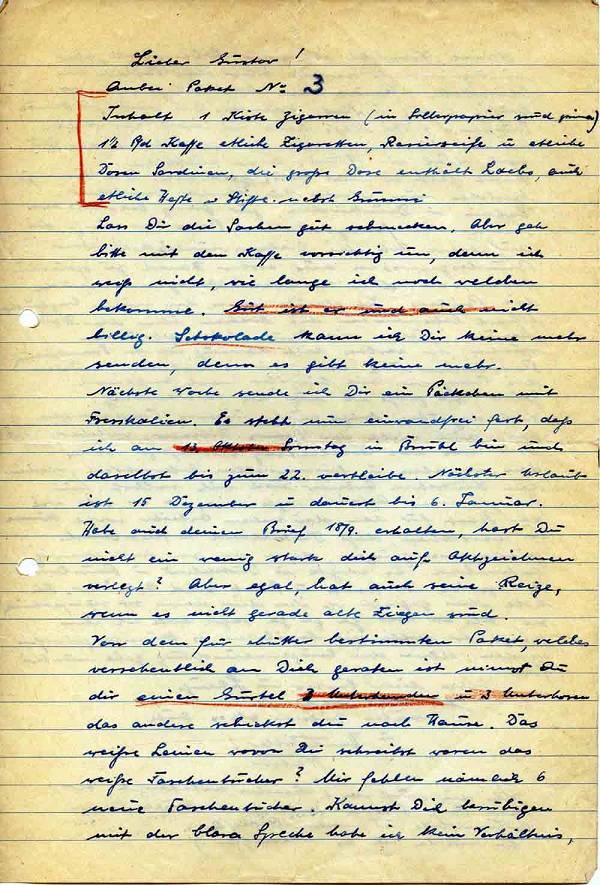 Lieber Gustav!
Anbei Paket No 3
Inhalt 1 Kiste Zigarren (in Silberpapier sind prima)
1½ Pfd Kaffe etliche Zigaretten, Rasierseife u etliche
Dosen Sardinen, die große Dose enthält Lachs, auch
etliche Hefte u Stifte nebst Gummi
Lass Dir die Sachen gut schmecken, Aber geh
bitte mit dem Kaffe vorsichtig um, denn ich
weiß nicht, wie lange ich noch welchen
bekomme. Gut ist er und auch nicht
billig. Schokolade kann ich Dir keine mehr
senden, denn es gibt keine mehr.
Nächste Woche sende ich Dir ein Päckchen mit
Fresskalien. Es steht nun einwandfrei fest, daß
ich am 13. Oktober Sonntag in Brühl bin und
daselbst bis zum 22. verbleibe. Nächster Urlaub
ist 15 Dezember u dauert bis 6. Januar.
Habe auch deinen Brief 18/9. erhalten, hast Du
nicht ein wenig stark dich auf Aktzeichnen
verlegt? Aber egal, hat auch seine Reize,
wenn es nicht gerade alte Ziegen sind.
Von dem für Mutter bestimmten Paket, welches
versehentlich an Dich geraten ist nimmst Du
dir einen Gürtel 3 Unterhemden u 3 Unterhosen
das andere schickst du nach Hause. Das
weiße Leinen wovon Du schreibst waren das
weiße Taschentücher? Mir fehlen nämlich 6
neue Taschentücher. Kannst Dich beruhigen
mit der Clara habe ich kein Verhältnis,